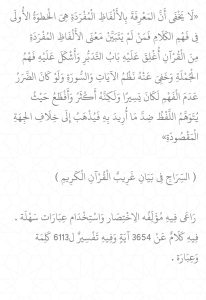 «لَا يَخْفَى أَنَّ الْمَعْرِفَةَ بِالْأَلْفَاظِ الْمُفْرَدَةِ هِيَ الْخُطْوَةُ الْأُولَى
فِي فَهْمِ الْكَلَامِ فَمَنْ لَمْ يَتَبَيَّنْ مَعْنَى الْأَلْفَاظِ الْمُفْرَدَةِ
مِنَ الْقُرْآنِ أُغْلِقَ عَلَيْهِ بَابُ التَّدَبُّرِ وَأَشْكَلَ عَلَيْهِ فَهْمُ
الْجُمْلَةِ وَخَفِيَ عَنْهُ نَظْمُ الْآيَاتِ وَالسُّورَةِ وَلَوْ كَانَ الضَّرَرُ
عَدَمَ الْفَهْمِ لَكَانَ يَسِيرًا وَلَكِنَّهُ أَكْثَرُ وَأَفْظَعُ حَيْثُ
يُتَوَهَّمُ اللَّفْظُ ضِدَّ مَا أُرِيدَ بِهِ فَيُذْهَبُ إِلَى خِلَافِ الْجِهَةِ
الْمَقْصُودَةِ»
( السِّرَاج فِي بَيَانِ غَرِيبُ الْقُرْآنِ الْكَرِيمِ )
رَاعَى فِيهِ مُؤَلِّفُه الِاخْتِصَار وَاسْتِخْدَام عِبَارَات سَهْلَة .
فِيهِ كَلَامٌ عَنْ 3654 آيَةٍ وَفِيهِ تَفْسِيرٌ لِ6113 كَلِمَة
وَعِبَارَة .